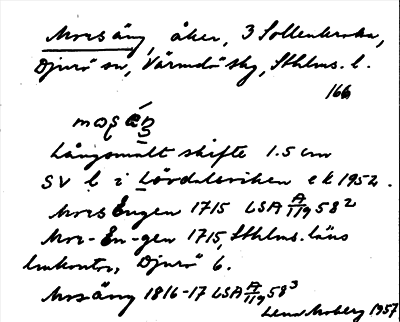 Morsäng, åker, 3 Sollenkroka,
Djurö sn, Värmdö skg, Sthlms. l.
166
Långsmält skifte 1.5 cm
SV l i Lördalsviken ek 1952.
Mors Engen 1715 LSA A/119 58²
Mor-En-gen 1715, Sthlms läns
lmkontor, Djurö 6.
Morsäng 1816-17 LSA A/119 58³
Lena Moberg 1957